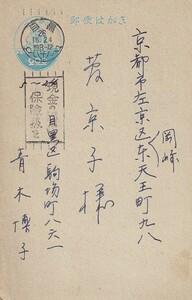 郵便はがき
目黒
26
24
京都市左京区东天王町九八
岡崎
菱京子様
現金の
保険扱を
目黒区駒場町八六一
青木博子